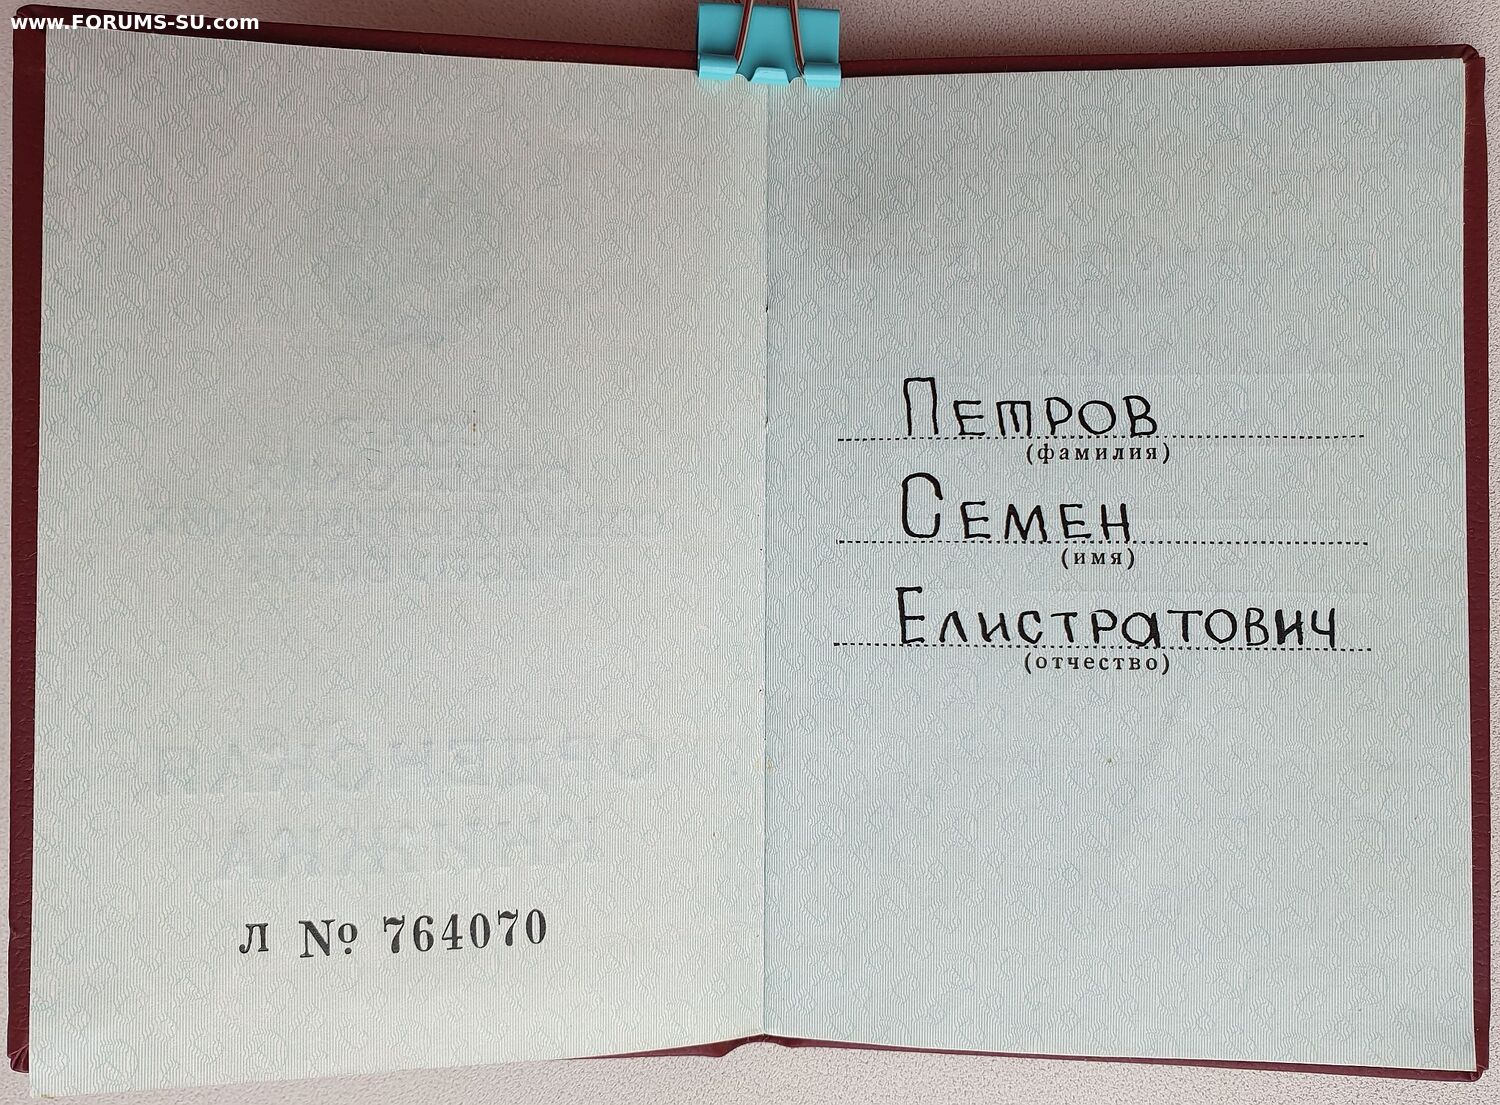 www.FORUMS-SU.com
Л № 764070
Петров
(фамилия)
Семен
(имя)
Елистратович
(отчество)